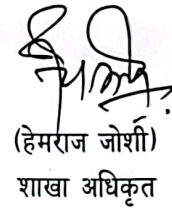 (हेमराज जोशी)
शाखा अधिकृत